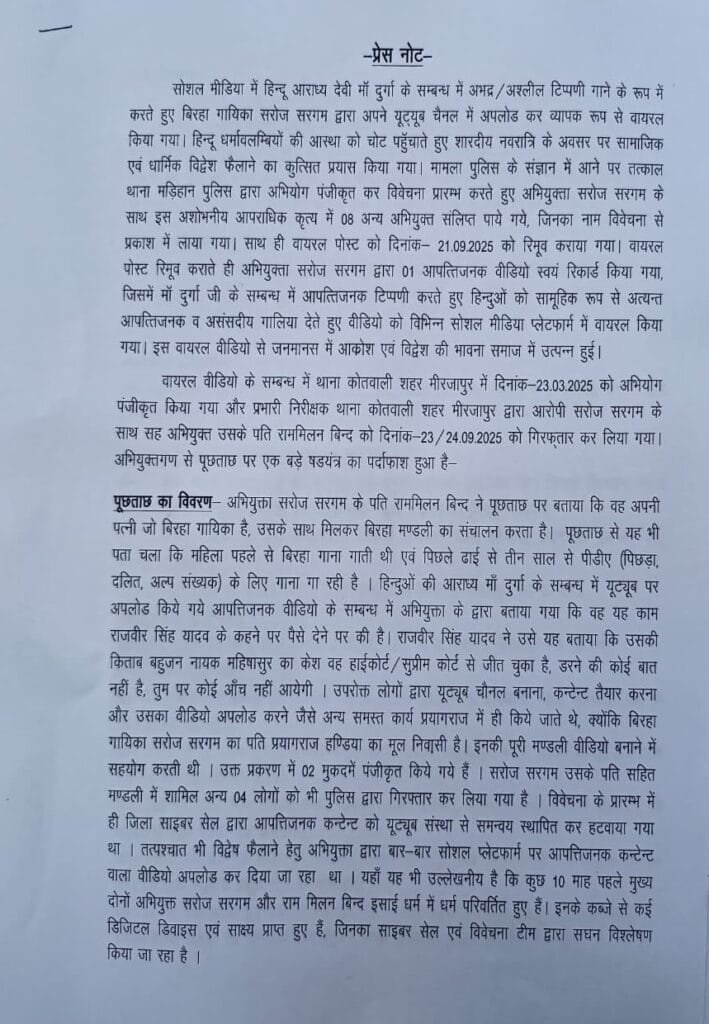 –प्रेस नोट–
सोशल मीडिया में हिन्दू आराध्य देवी माँ दुर्गा के सम्बन्ध में अभद्र/अश्लील टिप्पणी गाने के रूप में
करते हुए बिरहा गायिका सरोज सरगम द्वारा अपने यूट्यूब चैनल में अपलोड कर व्यापक रूप से वायरल
किया गया। हिन्दू धर्मावलम्बियों की आस्था को चोट पहुँचाते हुए शारदीय नवरात्रि के अवसर पर सामाजिक
एवं धार्मिक विद्वेश फैलाने का कुत्सित प्रयास किया गया। मामला पुलिस के संज्ञान में आने पर तत्काल
थाना मड़िहान पुलिस द्वारा अभियोग पंजीकृत कर विवेचना प्रारम्भ करते हुए अभियुक्ता सरोज सरगम के
साथ इस अशोभनीय आपराधिक कृत्य में 08 अन्य अभियुक्त संलिप्त पाये गये, जिनका नाम विवेचना से
प्रकाश में लाया गया। साथ ही वायरल पोस्ट को दिनांक– 21.09.2025 को रिमूव कराया गया। वायरल
पोस्ट रिमूव कराते ही अभियुक्ता सरोज सरगम द्वारा 01 आपत्तिजनक वीडियो स्वयं रिकार्ड किया गया,
जिसमें माँ दुर्गा जी के सम्बन्ध में आपत्तिजनक टिप्पणी करते हुए हिन्दुओं को सामूहिक रूप से अत्यन्त
आपत्तिजनक व असंसदीय गालिया देते हुए वीडियो को विभिन्न सोशल मीडिया प्लेटफार्म में वायरल किया
गया। इस वायरल वीडियो से जनमानस में आक्रोश एवं विद्वेश की भावना समाज में उत्पन्न हुई।
वायरल वीडियो के सम्बन्ध में थाना कोतवाली शहर मीरजापुर में दिनांक–23.03.2025 को अभियोग
पंजीकृत किया गया और प्रभारी निरीक्षक थाना कोतवाली शहर मीरजापुर द्वारा आरोपी सरोज सरगम के
साथ सह अभियुक्त उसके पति राममिलन बिन्द को दिनांक–23/24.09.2025 को गिरफ्तार कर लिया गया।
अभियुक्तगण से पूछताछ पर एक बड़े षडयंत्र का पर्दाफाश हुआ है–
पूछताछ का विवरण– अभियुक्ता सरोज सरगम के पति राममिलन बिन्द ने पूछताछ पर बताया कि वह अपनी
पत्नी जो बिरहा गायिका है, उसके साथ मिलकर बिरहा मण्डली का संचालन करता है। पूछताछ से यह भी
पता चला कि महिला पहले से बिरहा गाना गाती थी एवं पिछले ढाई से तीन साल से पीडीए (पिछड़ा,
दलित, अल्प संख्यक) के लिए गाना गा रही है । हिन्दुओं की आराध्य माँ दुर्गा के सम्बन्ध में यूट्यूब पर
अपलोड किये गये आपत्तिजनक वीडियो के सम्बन्ध में अभियुक्ता के द्वारा बताया गया कि वह यह काम
राजवीर सिंह यादव के कहने पर पैसे देने पर की है। राजवीर सिंह यादव ने उसे यह बताया कि उसकी
किताब बहुजन नायक महिषासुर का केश वह हाईकोर्ट/सुप्रीम कोर्ट से जीत चुका है, डरने की कोई बात
नहीं है, तुम पर कोई आँच नहीं आयेगी । उपरोक्त लोगों द्वारा यूट्यूब चौनल बनाना, कन्टेन्ट तैयार करना
और उसका वीडियो अपलोड करने जैसे अन्य समस्त कार्य प्रयागराज में ही किये जाते थे, क्योंकि बिरहा
गायिका सरोज सरगम का पति प्रयागराज हण्डिया का मूल निवासी है। इनकी पूरी मण्डली वीडियो बनाने में
सहयोग करती थी । उक्त प्रकरण में 02 मुकदमें पंजीकृत किये गये हैं । सरोज सरगम उसके पति सहित
मण्डली में शामिल अन्य 04 लोगों को भी पुलिस द्वारा गिरफ्तार कर लिया गया है । विवेचना के प्रारम्भ में
ही जिला साइबर सेल द्वारा आपत्तिजनक कन्टेन्ट को यूट्यूब संस्था से समन्वय स्थापित कर हटवाया गया
था । तत्पश्चात भी विद्वेष फैलाने हेतु अभियुक्ता द्वारा बार-बार सोशल प्लेटफार्म पर आपत्तिजनक कन्टेन्ट
वाला वीडियो अपलोड कर दिया जा रहा था । यहाँ यह भी उल्लेखनीय है कि कुछ 10 माह पहले मुख्य
दोनों अभियुक्त सरोज सरगम और राम मिलन बिन्द इसाई धर्म में धर्म परिवर्तित हुए हैं। इनके कब्जे से कई
डिजिटल डिवाइस एवं साक्ष्य प्राप्त हुए हैं, जिनका साइबर सेल एवं विवेचना टीम द्वारा सघन विश्लेषण
किया जा रहा है ।